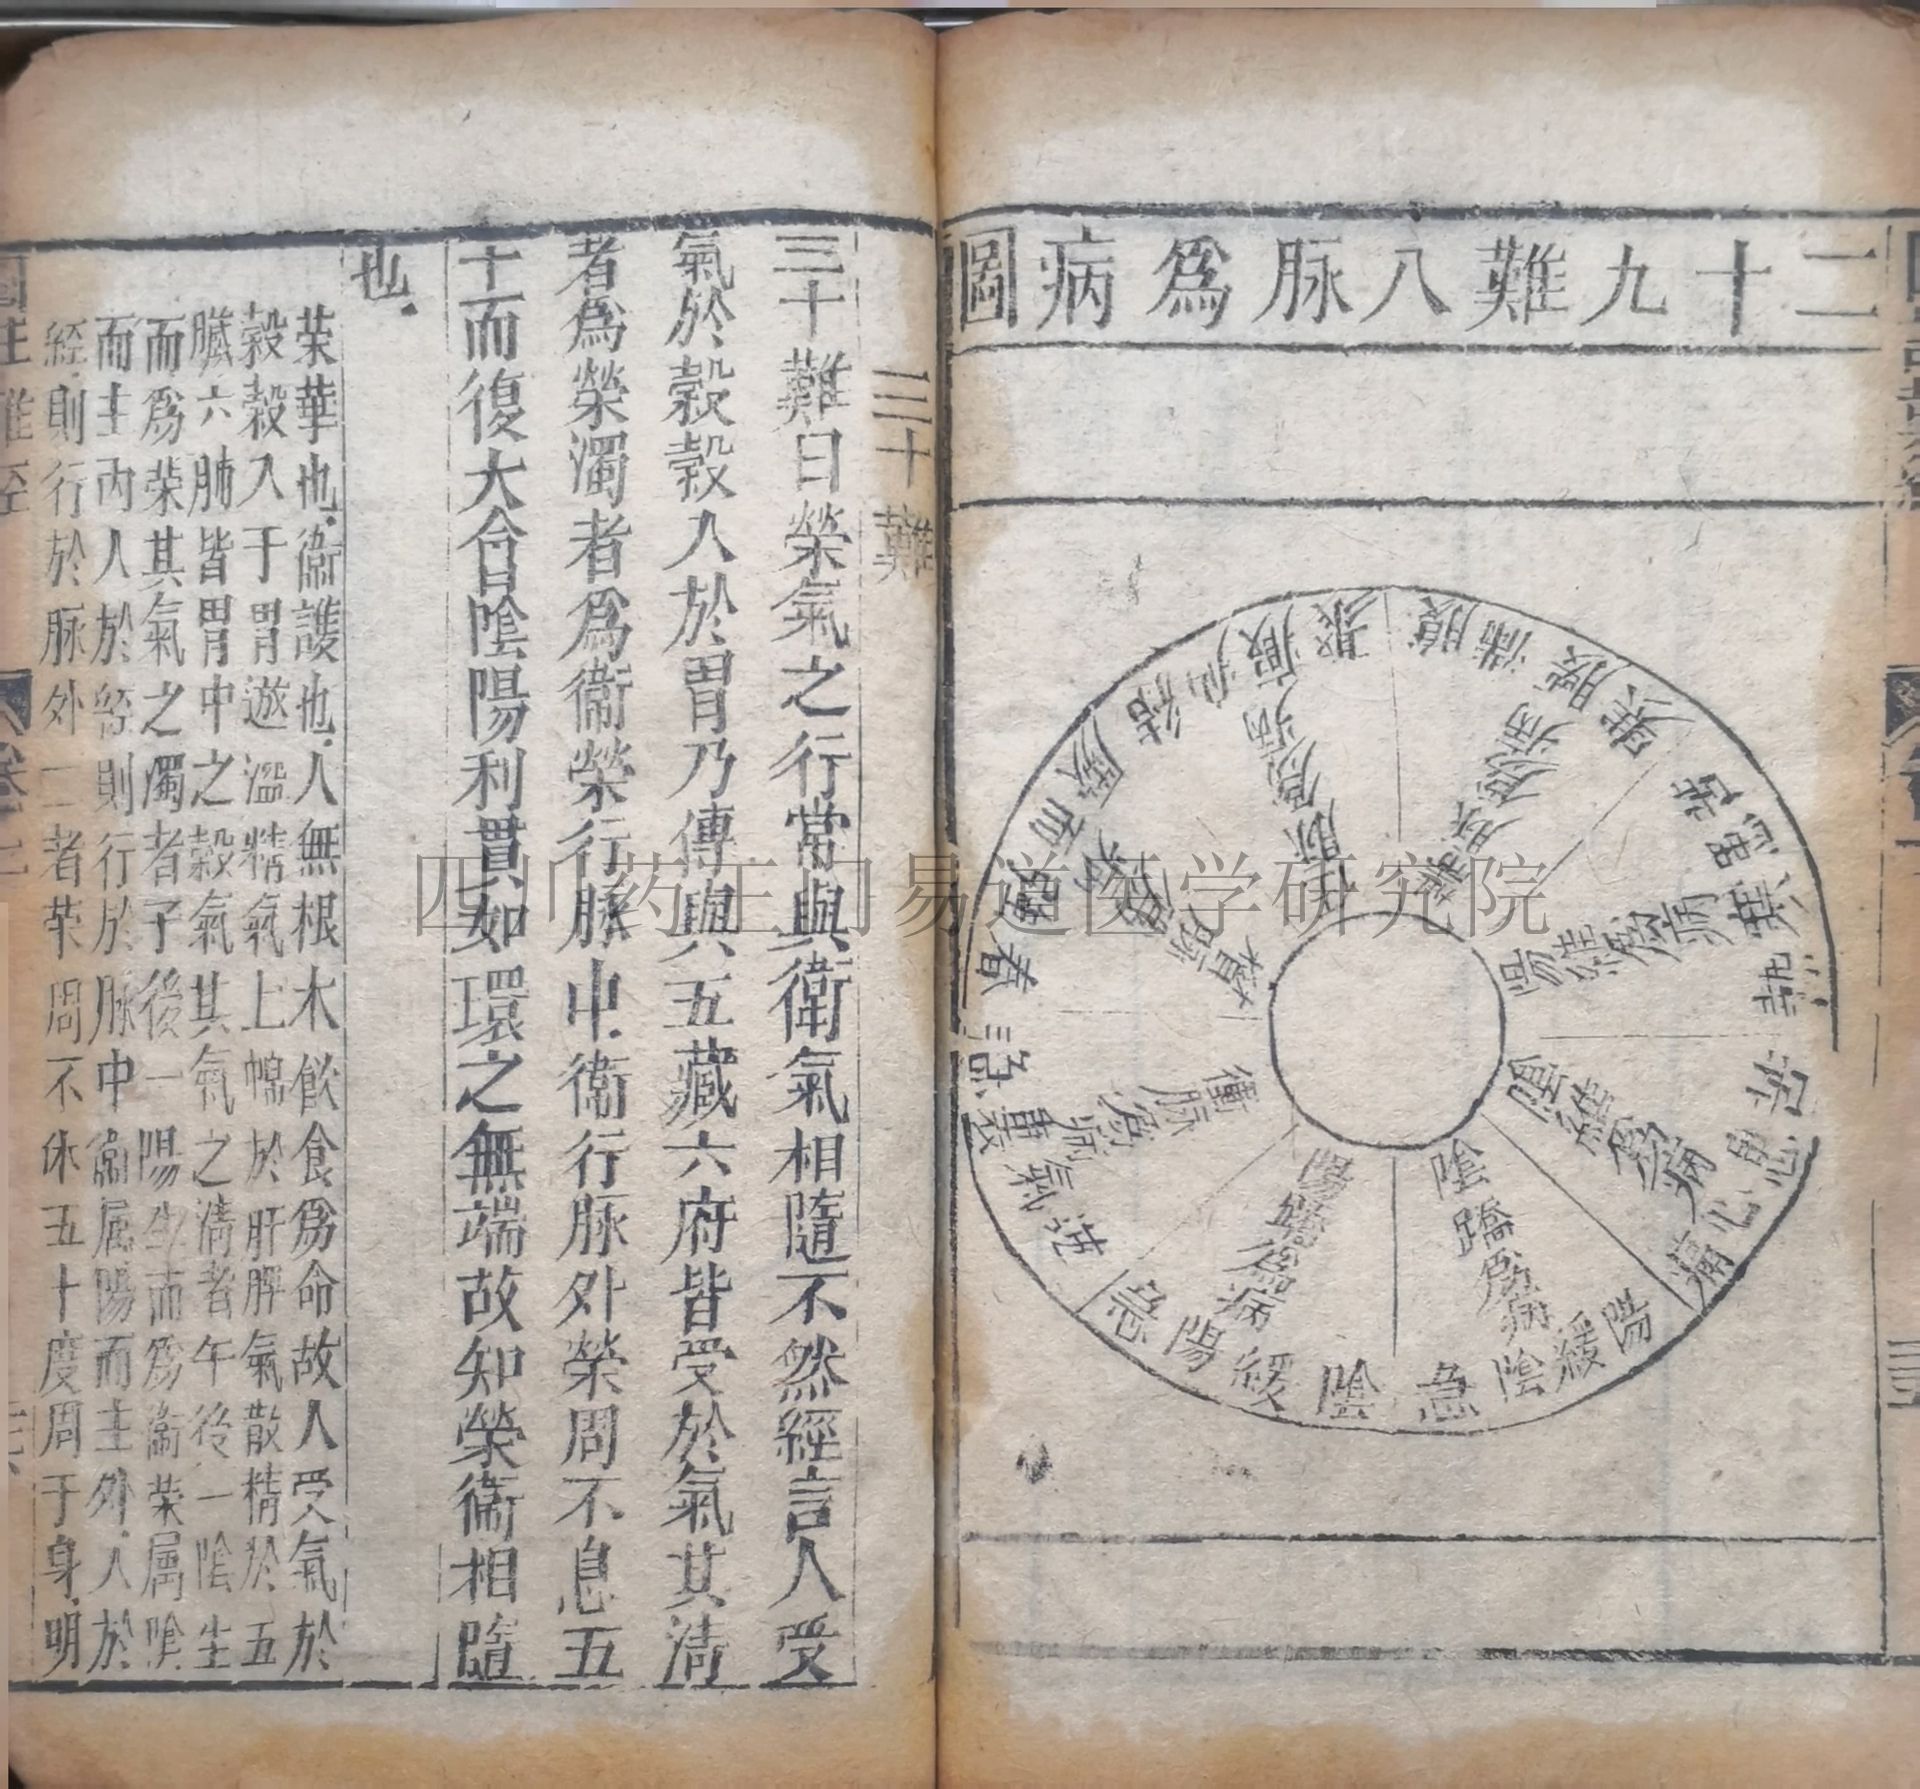 二十九難八脉爲病圖
陽維爲病
苦寒熱
陰維爲病
苦心痛
陰蹻爲病
陽緩陰急
陽蹻爲病
陰緩陽急
衝脉爲病
氣裏
督脉爲病
而厥
任脉爲病
結
聚
帶脉爲病
腹滿
三十難
三十難曰榮氣之行常與衛氣相隨不然經言人受
氣於穀穀入於胃乃傳與五藏六府皆受於氣其清
者爲榮濁者爲衛榮行脉中衛行脉外榮周不息五
十而復大會陰陽利貫如環之無端故知榮衛相隨
也
荣華也衛護也人無根木飲食爲命故人受氣於
穀穀入于胃遊溢精氣上歸於肝脾氣散精於五
臟六腑皆胃中之穀氣其氣之清者午後一陰生
而爲荣其氣之濁者子後一陽生而爲衛荣屬陰
而主内人於經則行於脉中衛属陽而主外人於
經則行於脉外二者荣周不休五十度周于身明
四川药王门易道医学研究院